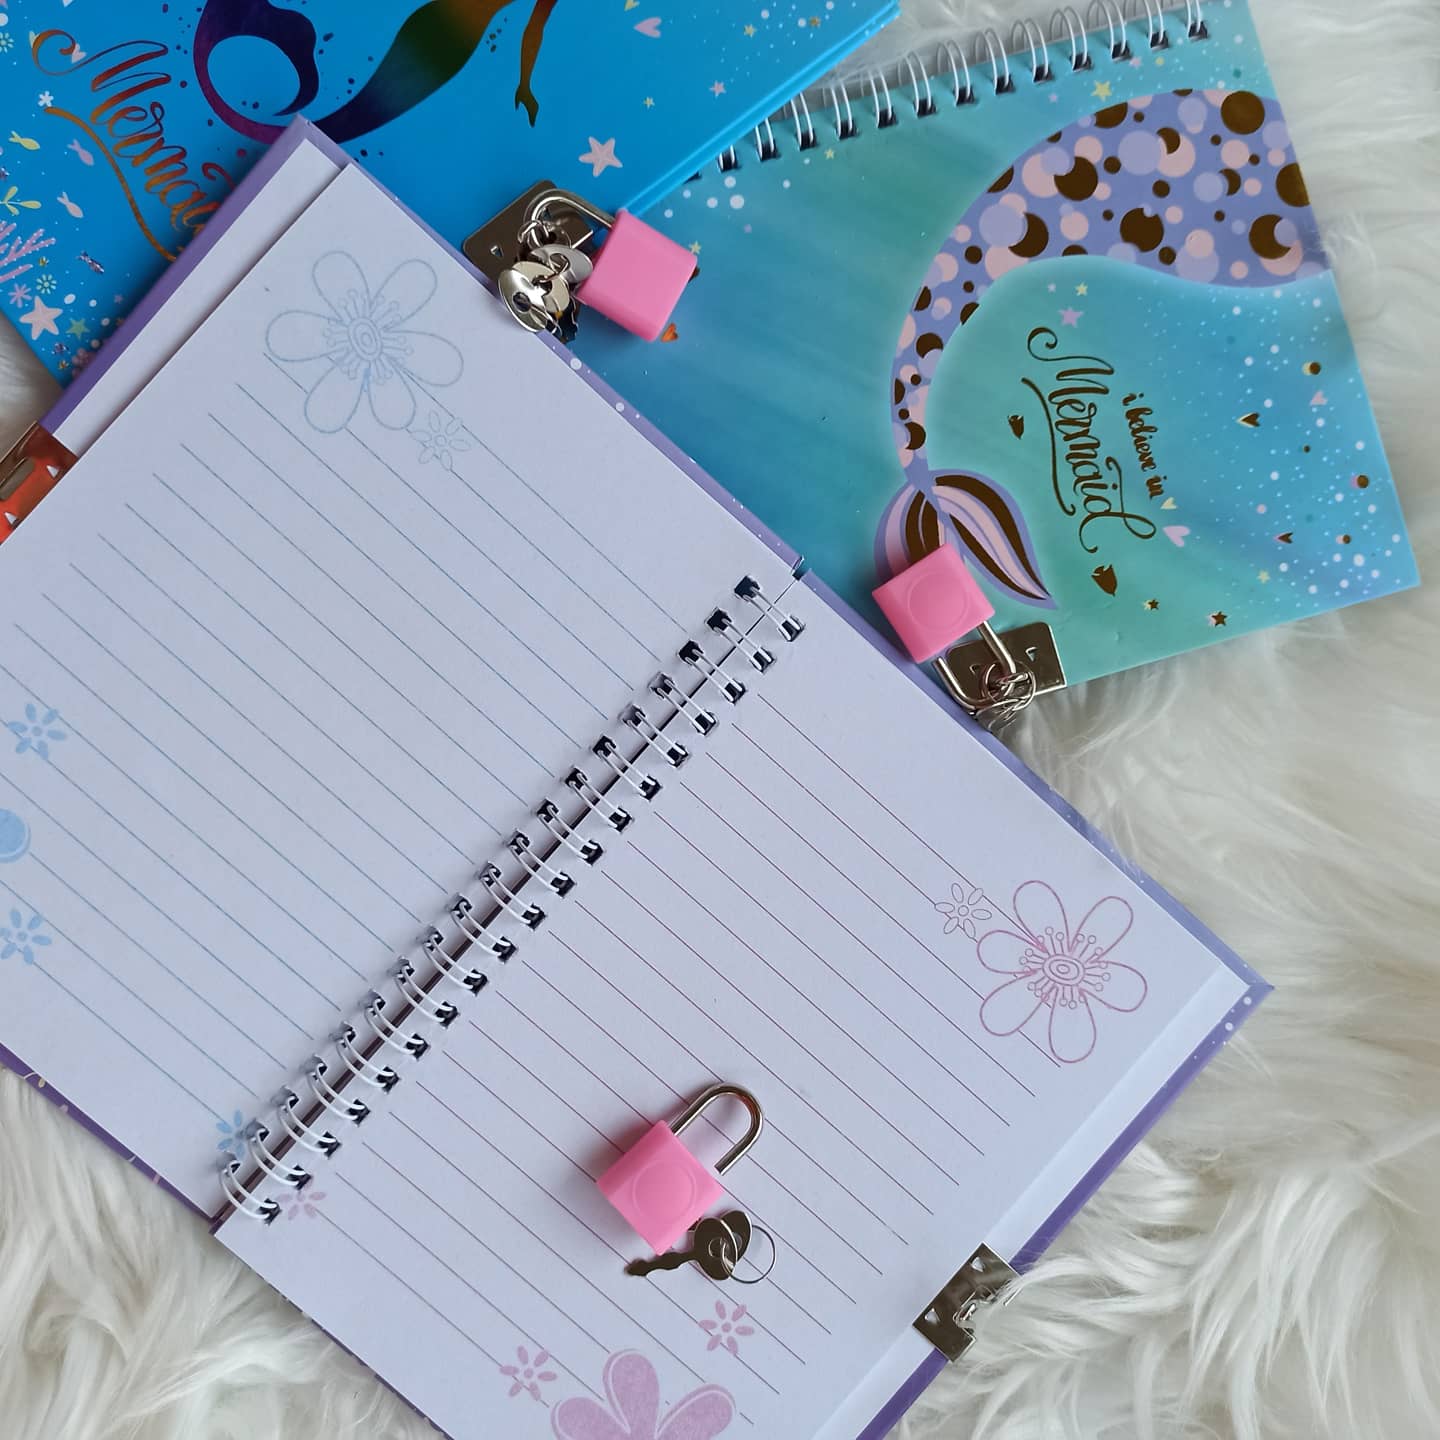 Mermaid
i believe in
Mermaid